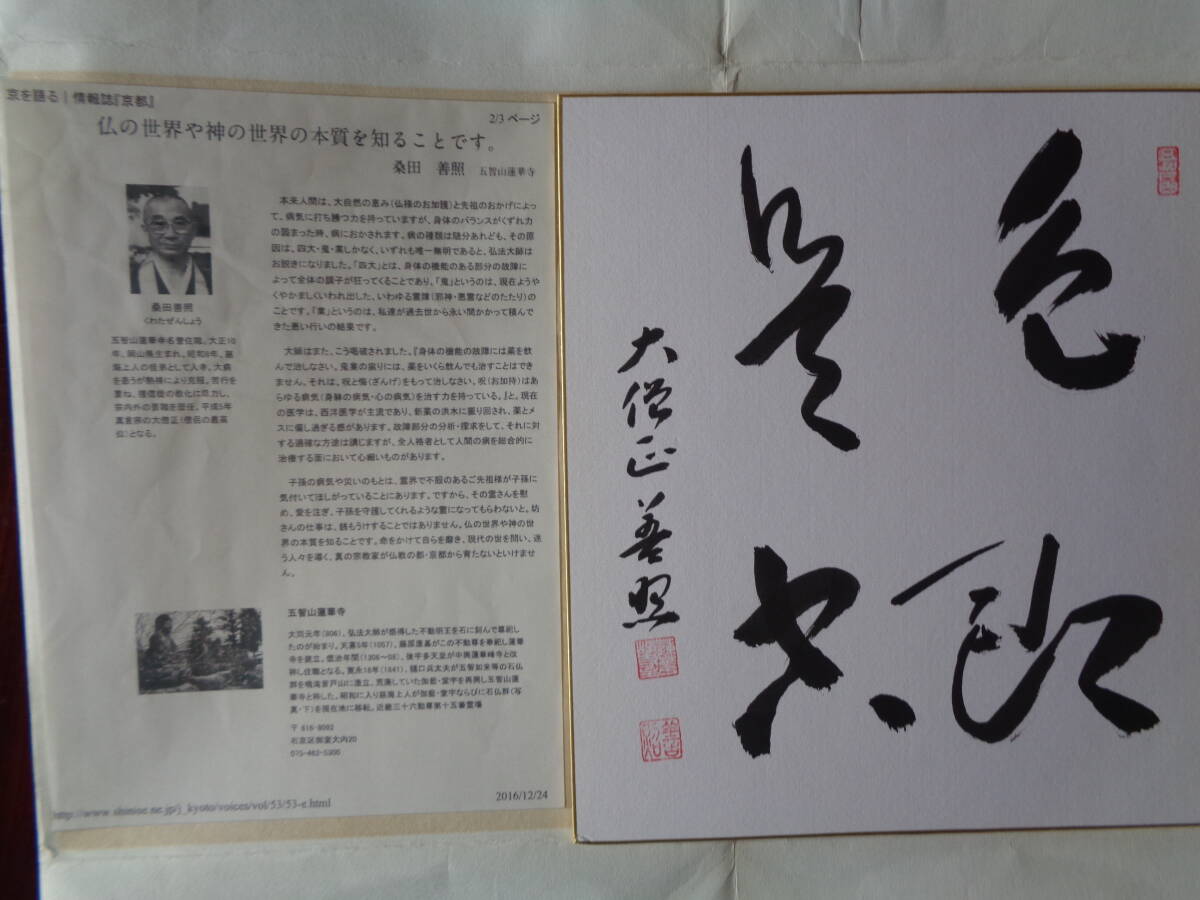 京を語る｜情報誌『京都』
2/3 ページ
仏の世界や神の世界の本質を知ることです。
桑田 善照 五智山蓮華寺
桑田善照
くわたぜんしょう
五智山蓮華寺名誉住職。大正10
年、岡山県生まれ。昭和8年、慈
海上人の徒弟として入寺。大病
を患うが熱祷により克服。苦行を
重ね、檀信徒の教化に尽力し、
宗内外の要職を歴任。平成5年
真言宗の大僧正(僧侶の最高
位)となる。
本来人間は、大自然の恵み(仏様のお加護)と先祖のおかげによっ
て、病気に打ち勝つ力を持っていますが、身体のバランスがくずれ力
の弱まった時、病におかされます。病の種類は随分あれども、その原
因は、四大・鬼・業しかなく、いずれも唯一無明であると、弘法大師は
お説きになりました。「四大」とは、身体の機能のある部分の故障に
よって全体の調子が狂ってくることであり、「鬼」というのは、現在ようや
くやかましくいわれ出した、いわゆる霊障(邪神・悪霊などのたたり)の
ことです。「業」というのは、私達が過去世から永い間かかって積んで
きた悪い行いの結果です。
大師はまた、こう喝破されました。『身体の機能の故障には薬を飲
んで治しなさい。鬼業の祟りには、薬をいくら飲んでも治すことはでき
ません。それは、呪と悔(ざんげ)をもって治しなさい。呪(お加持)はあ
らゆる病気(身躰の病気・心の病気)を治す力を持っている。』と。現在
の医学は、西洋医学が主流であり、新薬の洪水に振り回され、薬とメ
スに偏し過ぎる感があります。故障部分の分析・探求をして、それに対
する適確な方途は講じますが、全人格者として人間の病を総合的に
治療する面において心細いものがあります。
子孫の病気や災いのもとは、霊界で不服のあるご先祖様が子孫に
気付いてほしがっていることにあります。ですから、その霊さんを慰
め、愛を注ぎ、子孫を守護してくれるような霊になってもらわないと。坊
さんの仕事は、銭もうけすることではありません。仏の世界や神の世
界の本質を知ることです。命をかけて自らを磨き、現代の世を問い、迷
う人々を導く、真の宗教家が仏教の都・京都から育たないといけませ
ん。
五智山蓮華寺
大同元年(806)、弘法大師が感得した不動明王を石に刻んで尊祀し
たのが始まり。天喜5年(1057)、藤原康基がこの不動尊を奉祀し蓮華
寺を建立。後宇多天皇が中興蓮華峰寺と改
称し住職となる。寛永18年(1641)、樋口兵太夫が五智如来等の石仏
群を鳴滝音戸山に造立、荒廃していた伽藍・堂宇を再興し五智山蓮
華寺と称した。昭和に入り慈海上人が伽藍・堂宇ならびに石仏群(写
真・下)を現在地に移転。近畿三十六不動尊第十五番霊場
〒616-8092
右京区御室大内20
075-462-5300
http://www.shinise.ne.jp/j_kyoto/voices/vol/53/53-e.html
2016/12/24
色即
是空
大僧正善照